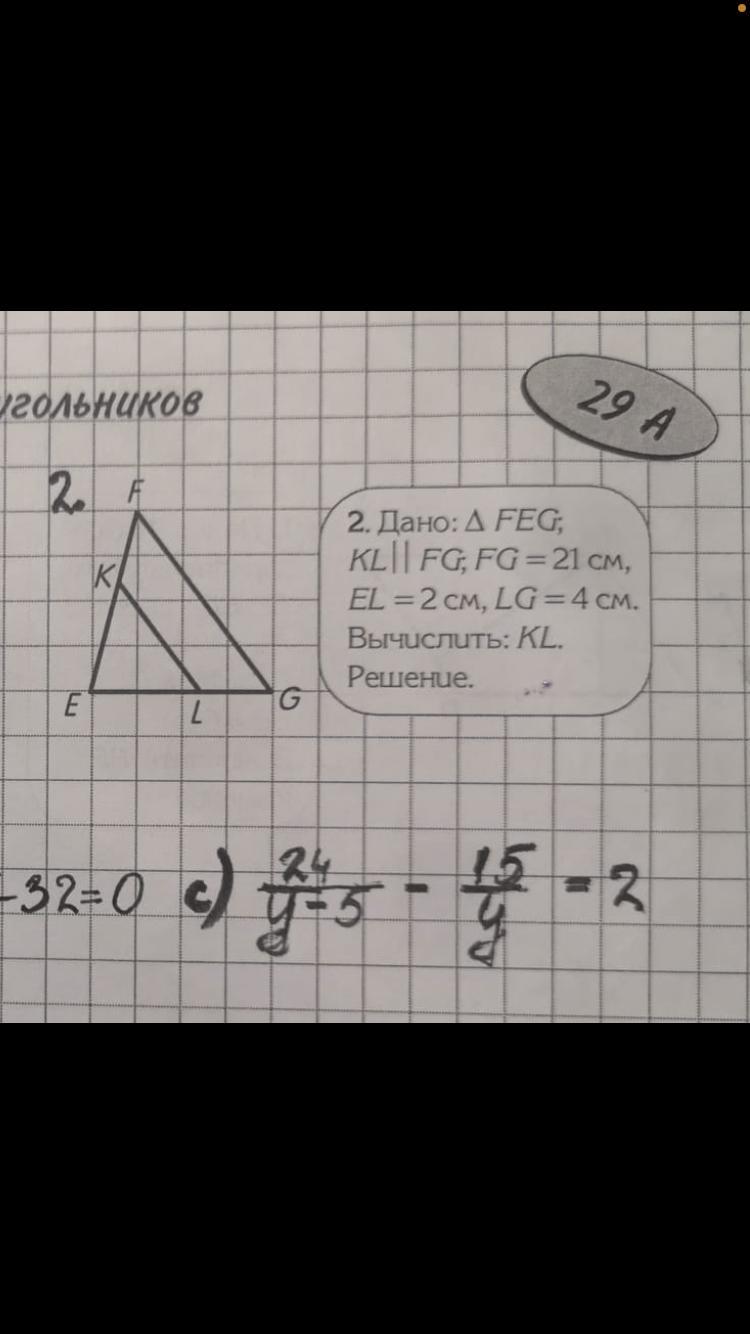 угольников
29 А
2.
F
K
E
L
G
2. Дано: Δ FEG;
KL || FG; FG = 21 см,
EL = 2 см, LG = 4 см.
Вычислить: KL.
Решение.
-32=0 c) 24/(y-5) - 15/y = 2